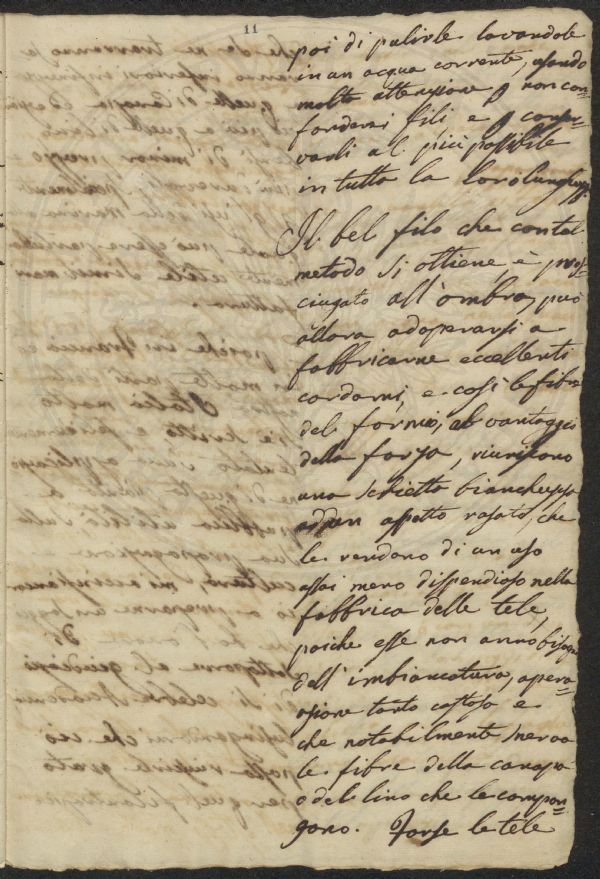 11
poi di pulirle lavandole
in un acqua corrente, usando
molta attenzione p non con
fondersi fili e p conser-
varli al più possibile
in tutta la loro lunghezza.
Il bel filo che con tal
metodo si ottiene, è pros=
ciugato all'ombra, può
allora adoperarsi a
fabbricarne eccellenti
cordami, e così le fibre
del formio, al vantaggio
della forza, riuniscono
una schietta bianchezza
ad un aspetto rasato, che
le rendono di un uso
assai meno dispendioso nella
fabbrica delle tele,
poiche esse non anno bisogno
dell'imbiancatura, opera=
zione tanto costosa e
che notabilmente snerva
le fibre della canapa
o del lino che le compon=
gono. Forse le tele